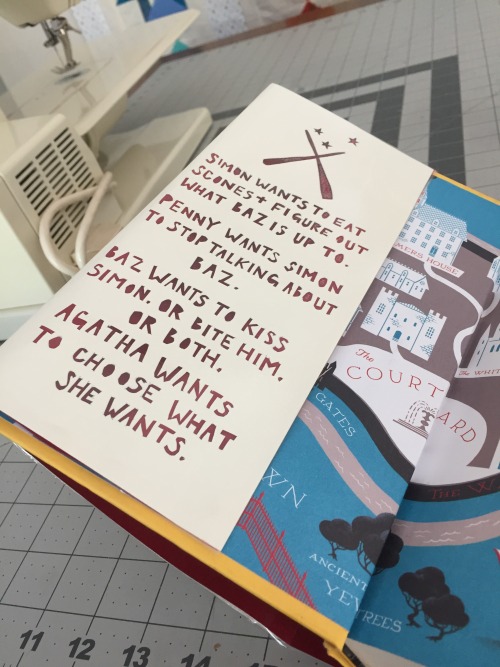 SIMON WANTS TO EAT
SCONES + FIGURE OUT
WHAT BAZ IS UP TO.
PENNY WANTS SIMON
TO STOP TALKING ABOUT
BAZ.
BAZ WANTS TO KISS
SIMON. OR BITE HIM.
OR BOTH.
AGATHA WANTS
TO CHOOSE WHAT
SHE WANTS.
MERS HOUSE
The WHIT
The
COURT
ARD
GATES
THE
WN
ANCIENT
YE
TREES
11 12 13 14